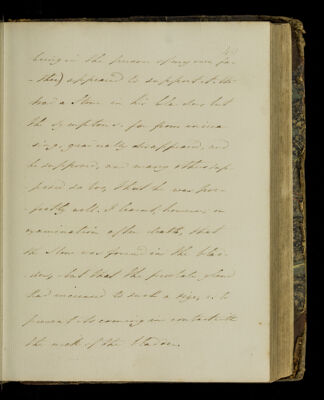 being in the person of my own fa-
-ther) appeared to support it. He
had a Stone in his bladder, but
the symptoms, far from increa-
sing, gradually disappeared, and
he supposed, and many others sup-
posed also, that he was per-
-fectly well. I learnt, however, on
examination after death, that
the Stone was found in the blad-
der, but that the prostate gland
had increased to such a size, as to
prevent its coming in contact with
the neck of the bladder.